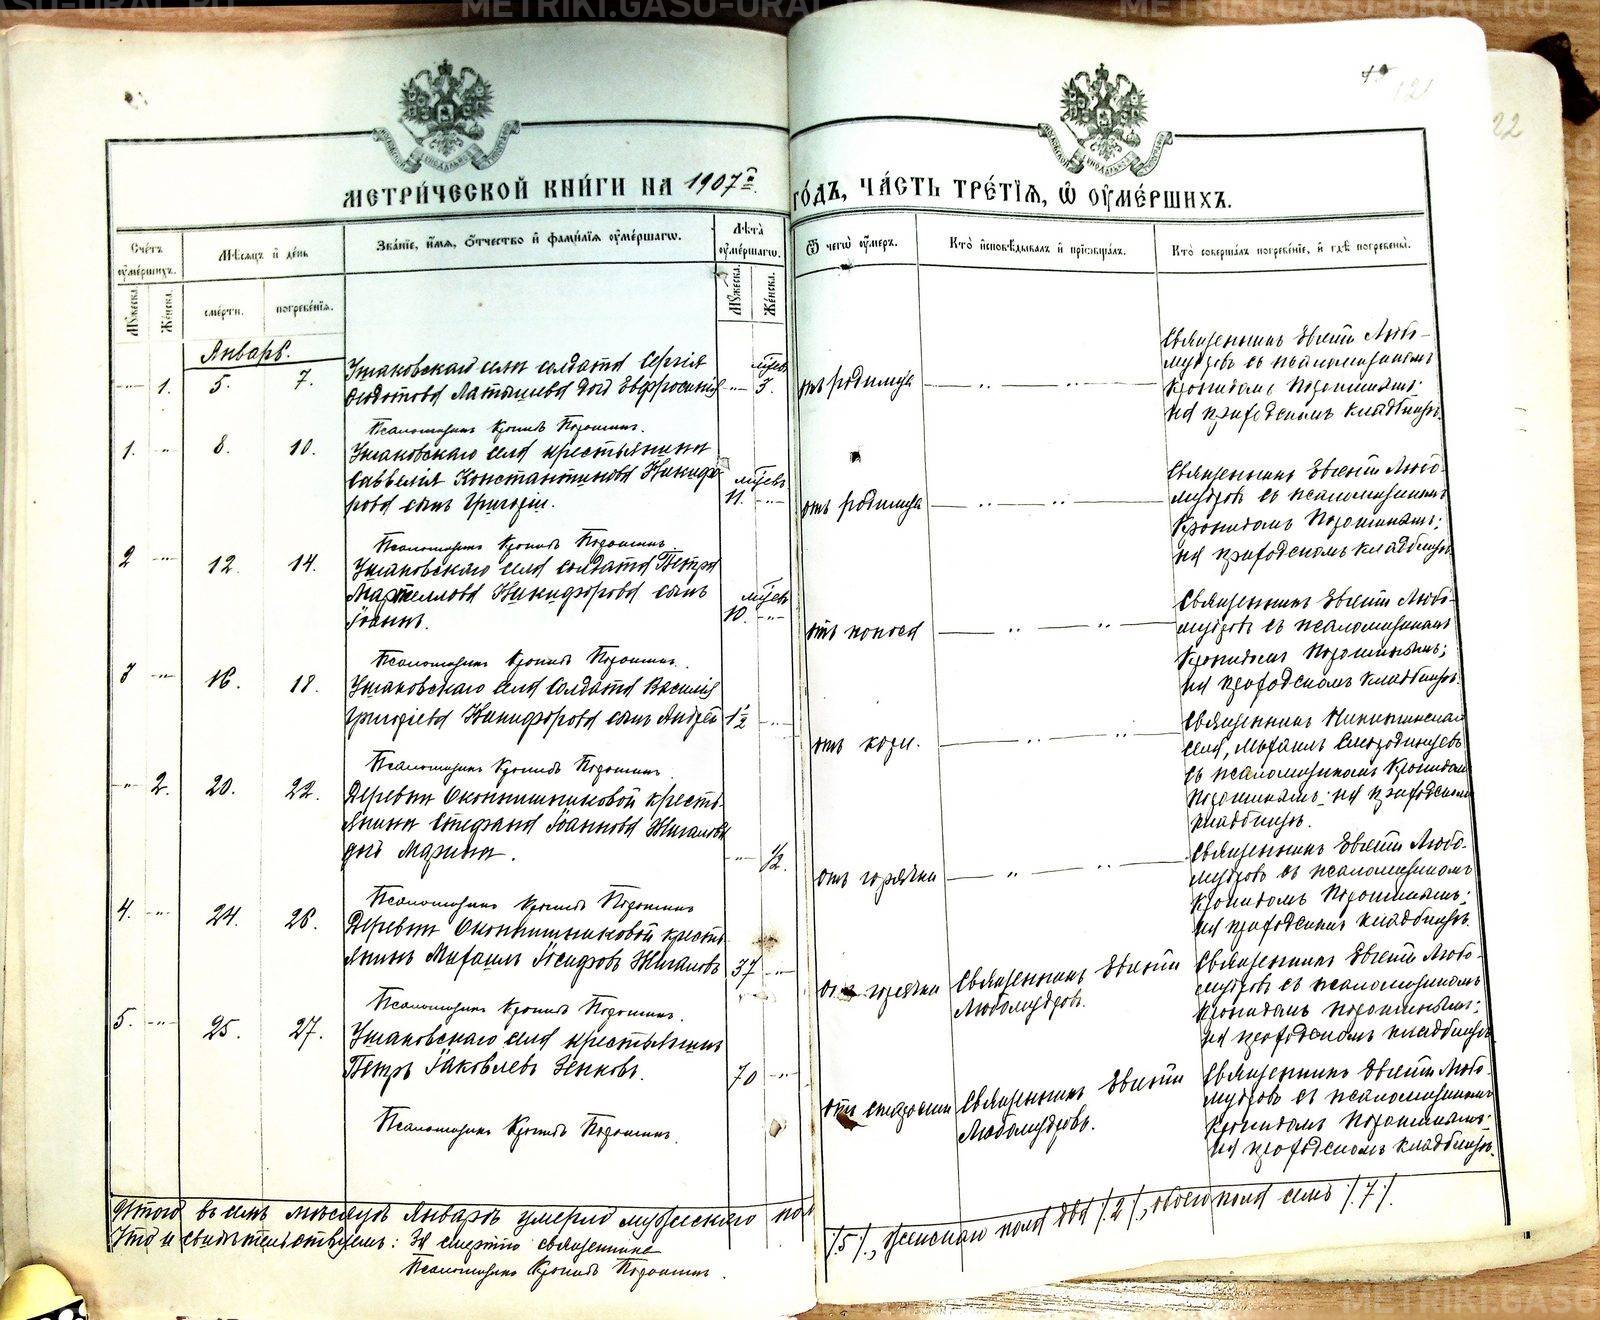 METRIKI.GASU-URAL.RU
METRIKI.GASU-URAL.RU
МЕТРИ́ЧЕСКОЙ КНИ́ГИ НА 1907й
ГО́ДЪ, ЧА́СТЬ ТРЕ́ТІѦ, Ѡ҆ ОУ҆МЕ́РШИХЪ.
121
22
Сче́тъ оу҆ме́ршихъ.
Мѣ́сяцъ и҆ де́нь
Зва́нїе, и҆́мѧ, ѻ҆́тчество и҆ фами́лїѧ оу҆ме́ршагѡ.
Лѣ́та оу҆ме́ршагѡ.
Ѿ чегѡ̀ оу҆́меръ.
Кто̀ и҆сповѣ́дывалъ и҆ прїѡбща́лъ.
Кто̀ соверша́лъ погребе́нїе, и҆ гдѣ̀ погребены̀.
Мꙋ́жеска.
Же́нска.
сме́рти.
погребе́нїѧ.
Мꙋ́жеска.
Же́нска.
Январь.
1. 5. 7.
Ушаковскаго села солдата Сергія
Ѳедотова Латышева дочь Евфросинія
3.
отъ родимца
Священникъ Евѳеній Любо-
мудровъ съ псаломщикомъ
Кронидомъ Порошинымъ;
на приходскомъ кладбищѣ.
Псаломщикъ Кронидъ Порошинъ.
1. 8. 10.
Ушаковскаго села крестьянина
Савелія Константинова Никифо-
рова сынъ Григорій.
11.
отъ родимца
мудровъ съ псаломщикомъ
Кронидомъ Порошинымъ;
на приходскомъ кладбищѣ.
Псаломщикъ Кронидъ Порошинъ.
2 12. 14.
Ушаковскаго села солдата Петра
Маркеллова Никифорова сынъ
Іоаннъ.
10.
отъ поноса
мудровъ съ псаломщикомъ
Кронидомъ Порошинымъ;
на приходскомъ кладбищѣ.
Псаломщикъ Кронидъ Порошинъ.
3 16. 18.
Ушаковскаго села солдата Василія
Григоріева Никифорова сынъ Андрей
1½
отъ кори.
Священникъ Никитинскаго
села, Михаилъ Смородинцевъ
съ псаломщикомъ Кронидомъ
Порошинымъ; на приходскомъ
кладбищѣ.
Псаломщикъ Кронидъ Порошинъ.
2. 20. 22.
Деревни Оконишниковой кресть-
янина Стефана Іоаннова Жигалова
дочь Марина.
½.
отъ горячки
мудровъ съ псаломщикомъ
Кронидомъ Порошинымъ;
на приходскомъ кладбищѣ.
Псаломщикъ Кронидъ Порошинъ
4. 24. 26.
Деревни Оконишниковой кресть-
янинъ Михаилъ Іосифовъ Жигаловъ
37
отъ горячки
Любомудровъ.
мудровъ съ псаломщикомъ
Кронидомъ Порошинымъ;
на приходскомъ кладбищѣ.
Псаломщикъ Кронидъ Порошинъ.
5. 25. 27.
Ушаковскаго села крестьянинъ
Петръ Іаковлевъ Зенковъ.
70
отъ старости
Любомудровъ.
мудровъ съ псаломщикомъ
Кронидомъ Порошинымъ;
на приходскомъ кладбищѣ.
Псаломщикъ Кронидъ Порошинъ.
Итого въ семъ мѣсяцѣ Январѣ умерло мужескаго пола
/5/, женскаго пола два /2/, обоего пола семь /7/.
Что и свидѣтельствуемъ: За смертію священника
Псаломщикъ Кронидъ Порошинъ.
METRIKI.GASU